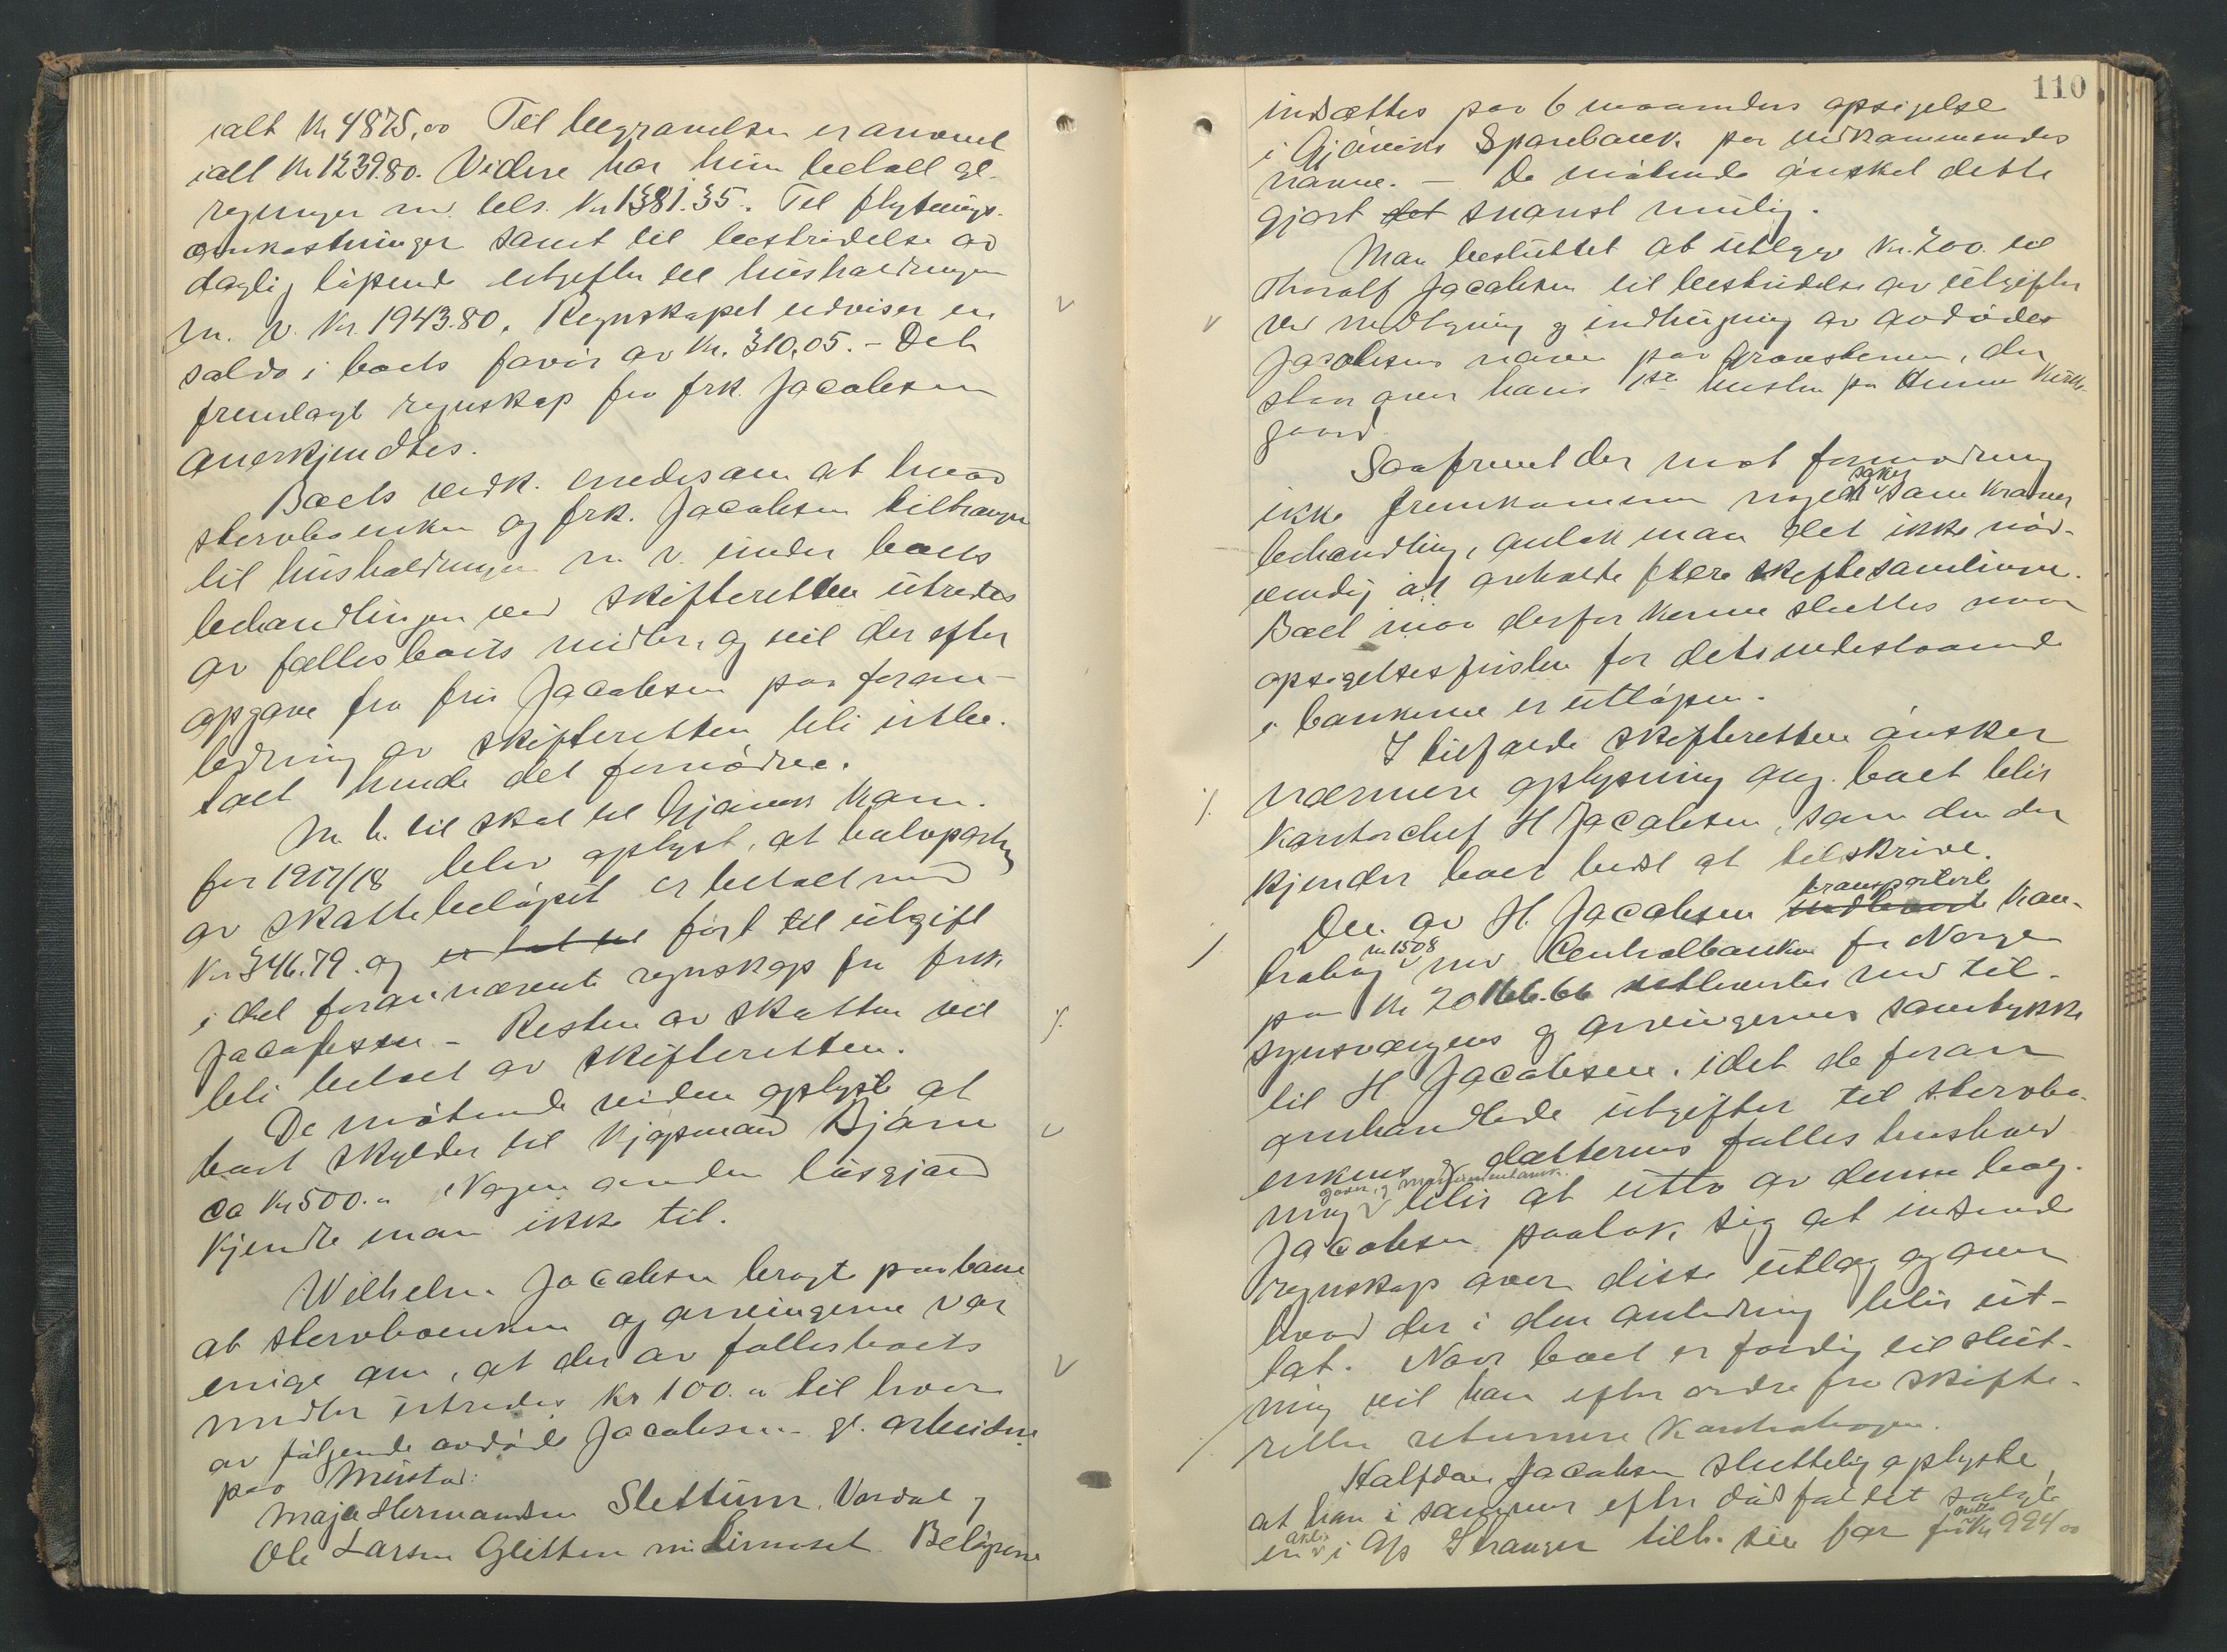 ialt Kr 4875,00 Til begravelsen er anvendt
ialt Kr 1239.80. Videre har hun betalt gl.
regninger m. bel. Kr 1381.35. Til flytnings-
omkostninger samt til bestridelse av
daglig løpende utgifter til husholdningen
m. v. Kr. 1943.80. Regnskapet udviser en
saldo i boets favør av Kr. 310,05. – Det
fremlagte regnskap fra frk. Jacobsen
anerkjendtes.
Boets vedk. enedes om at hvad
stervboenken og frk. Jacobsen tiltrænger
til husholdningen m. v. under boets
behandlingen ved skifteretten utredes
av fællesboets midler, og vil der efter
opgave fra fru Jacobsen paa foran-
ledning av skifteretten bli utbe-
talt hende det fornødne.
M. h. til skat til Gjøvik Kom.
for 1917/18 blev oplyst, at halvparten
av skattebeløpet er betalt med
Kr 346.79. og ført til utgift
i det forannævnte regnskap fra frk.
Jacobsen – Resten av skatten vil
bli betalt av skifteretten.
De møtende videre oplyste at
boet skylder til Kjøpmand Bjørn
ca Kr 500.- Nogen anden løsgjæld
kjendte man ikke til.
Wilhelm Jacobsen bragte paa bane
at stervboenken og arvingerne var
enige om, at der av fællesboets
midler utredes kr 100.- til hver
av følgende avdøde Jacobsens gl. arbeidere
paa Mustad:
Maja Hermansen Slettum, Vardal og
Ole Larsen Glitten Beløpene
110
indsættes paa 6 maaneders opsigelse
i Gjøviks Sparebank paa vedkommendes
navne. – De møtende ønsket dette
gjort det snarest mulig.
Man besluttet at utlegge Kr. 200. til
Thoralf Jacobsen til bestridelse av utgifter
ved nedlægning og indhugning av avdøde
Jacobsens navn paa gravstenen, der
staar over hans 1ste hustru paa Hunn Kirke-
gaard.
Saafremt der mot formodning
ikke fremkommer nogen saker som kræver
behandling, antok man det ikke nød-
vendig at avholde flere skiftesamlinger.
Boet maa derfor kunne sluttes naar
opsigelsesfristen for det indestaaende
i bankerne er utløpen.
I tilfælde skifteretten ønsker
nærmere oplysning ang. boet blir
Kontorchef H Jacobsen, som den der
kjender boet bedst at tilskrive.
Den av H. Jacobsen transporterte Kon-
trabog nr 1508 med Centralbanken for Norge
paa Kr 20 utleveres med til-
synsvergens og arvingernes samtykke
til H Jacobsen, idet de foran
omhandlede utgifter til stervbo-
enkens og datterens fælles hushold-
ning gaver, og blir at utta av denne bog.
Jacobsen paatok sig at indsende
regnskap over disse utlæg og over
hvad der i den anledning blir ut-
tat. Naar boet er færdig til slut-
ning vil han efter ordre fra skifte-
retten returnere Kontrabogen.
Halfdan Jacobsen sluttelig oplyste,
at han i sommer efter dødsfaldet solgte
en aktie i A/s Stranger tilh. sin far for netto Kr 994 00